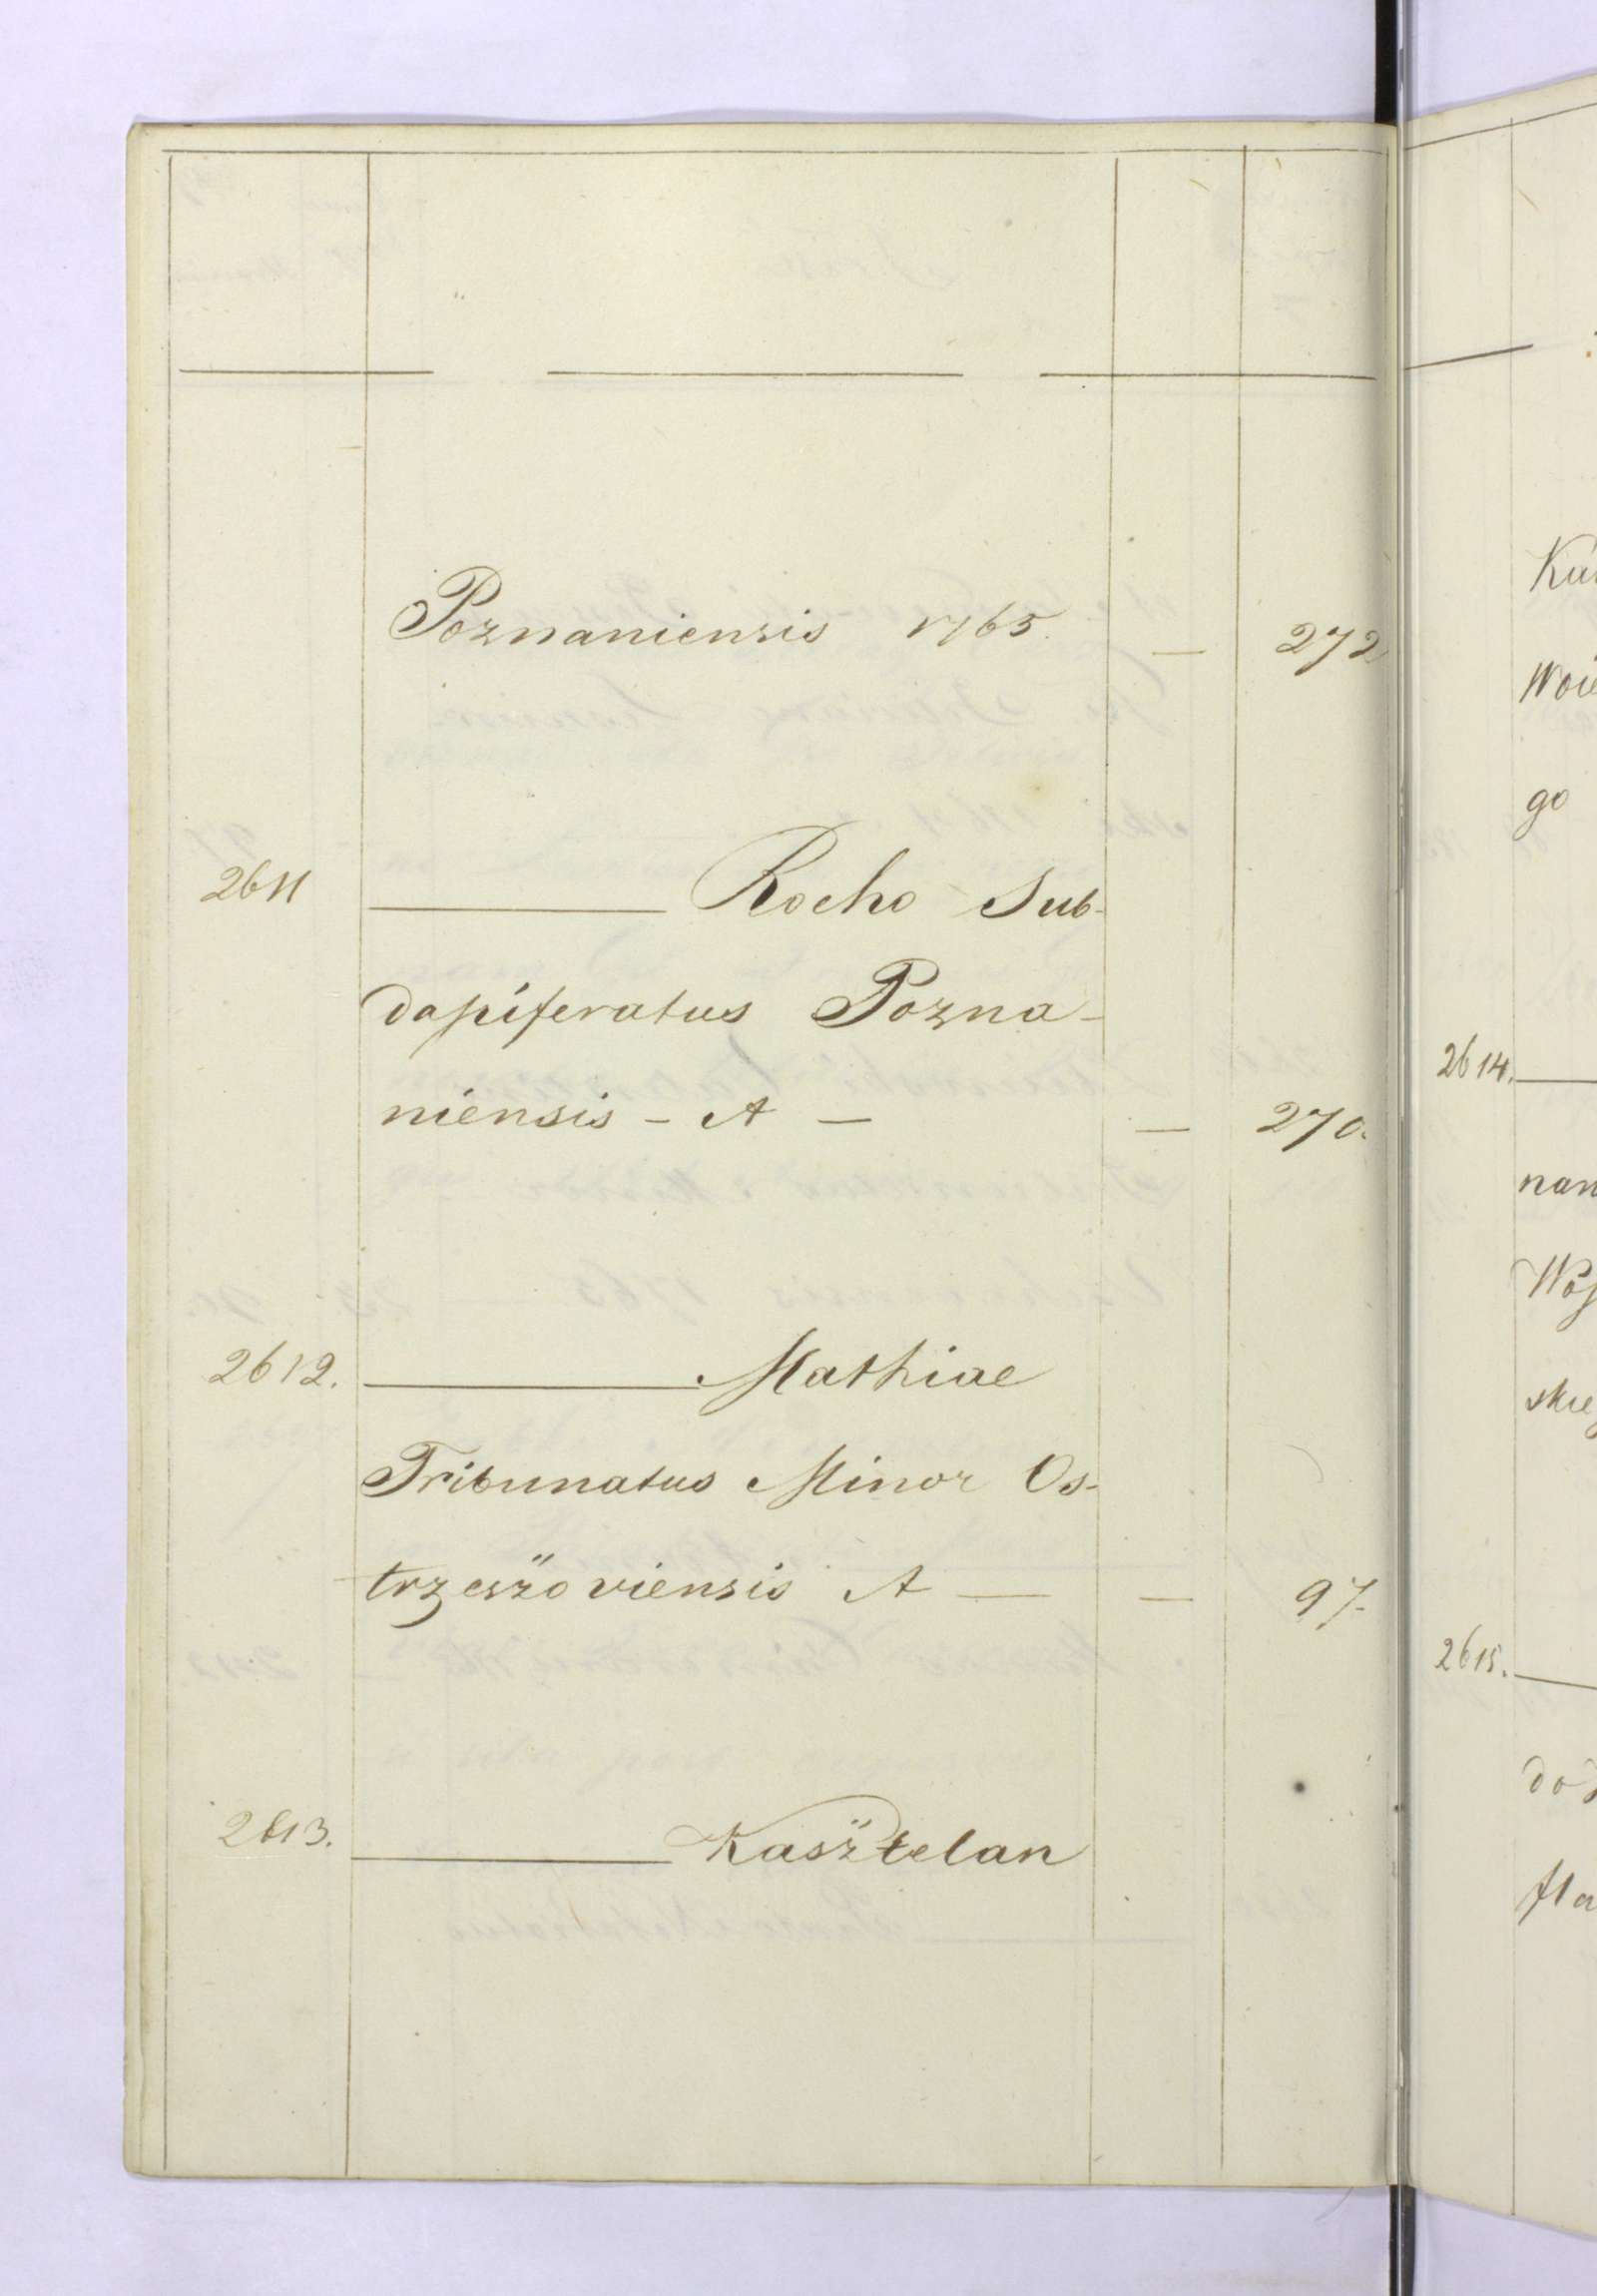 Poznaniensis 1765. — 272
2611 ——— Rocho Sub-
dapiferatus Pozna-
niensis - A - — 270.
2612. ——— Mathiae
Tribunatus Minor Os-
trzeszoviensis A — — 97.
2613. ——— Kasztelan
Woie
go
2614. ———
nan
skie
2615. ———